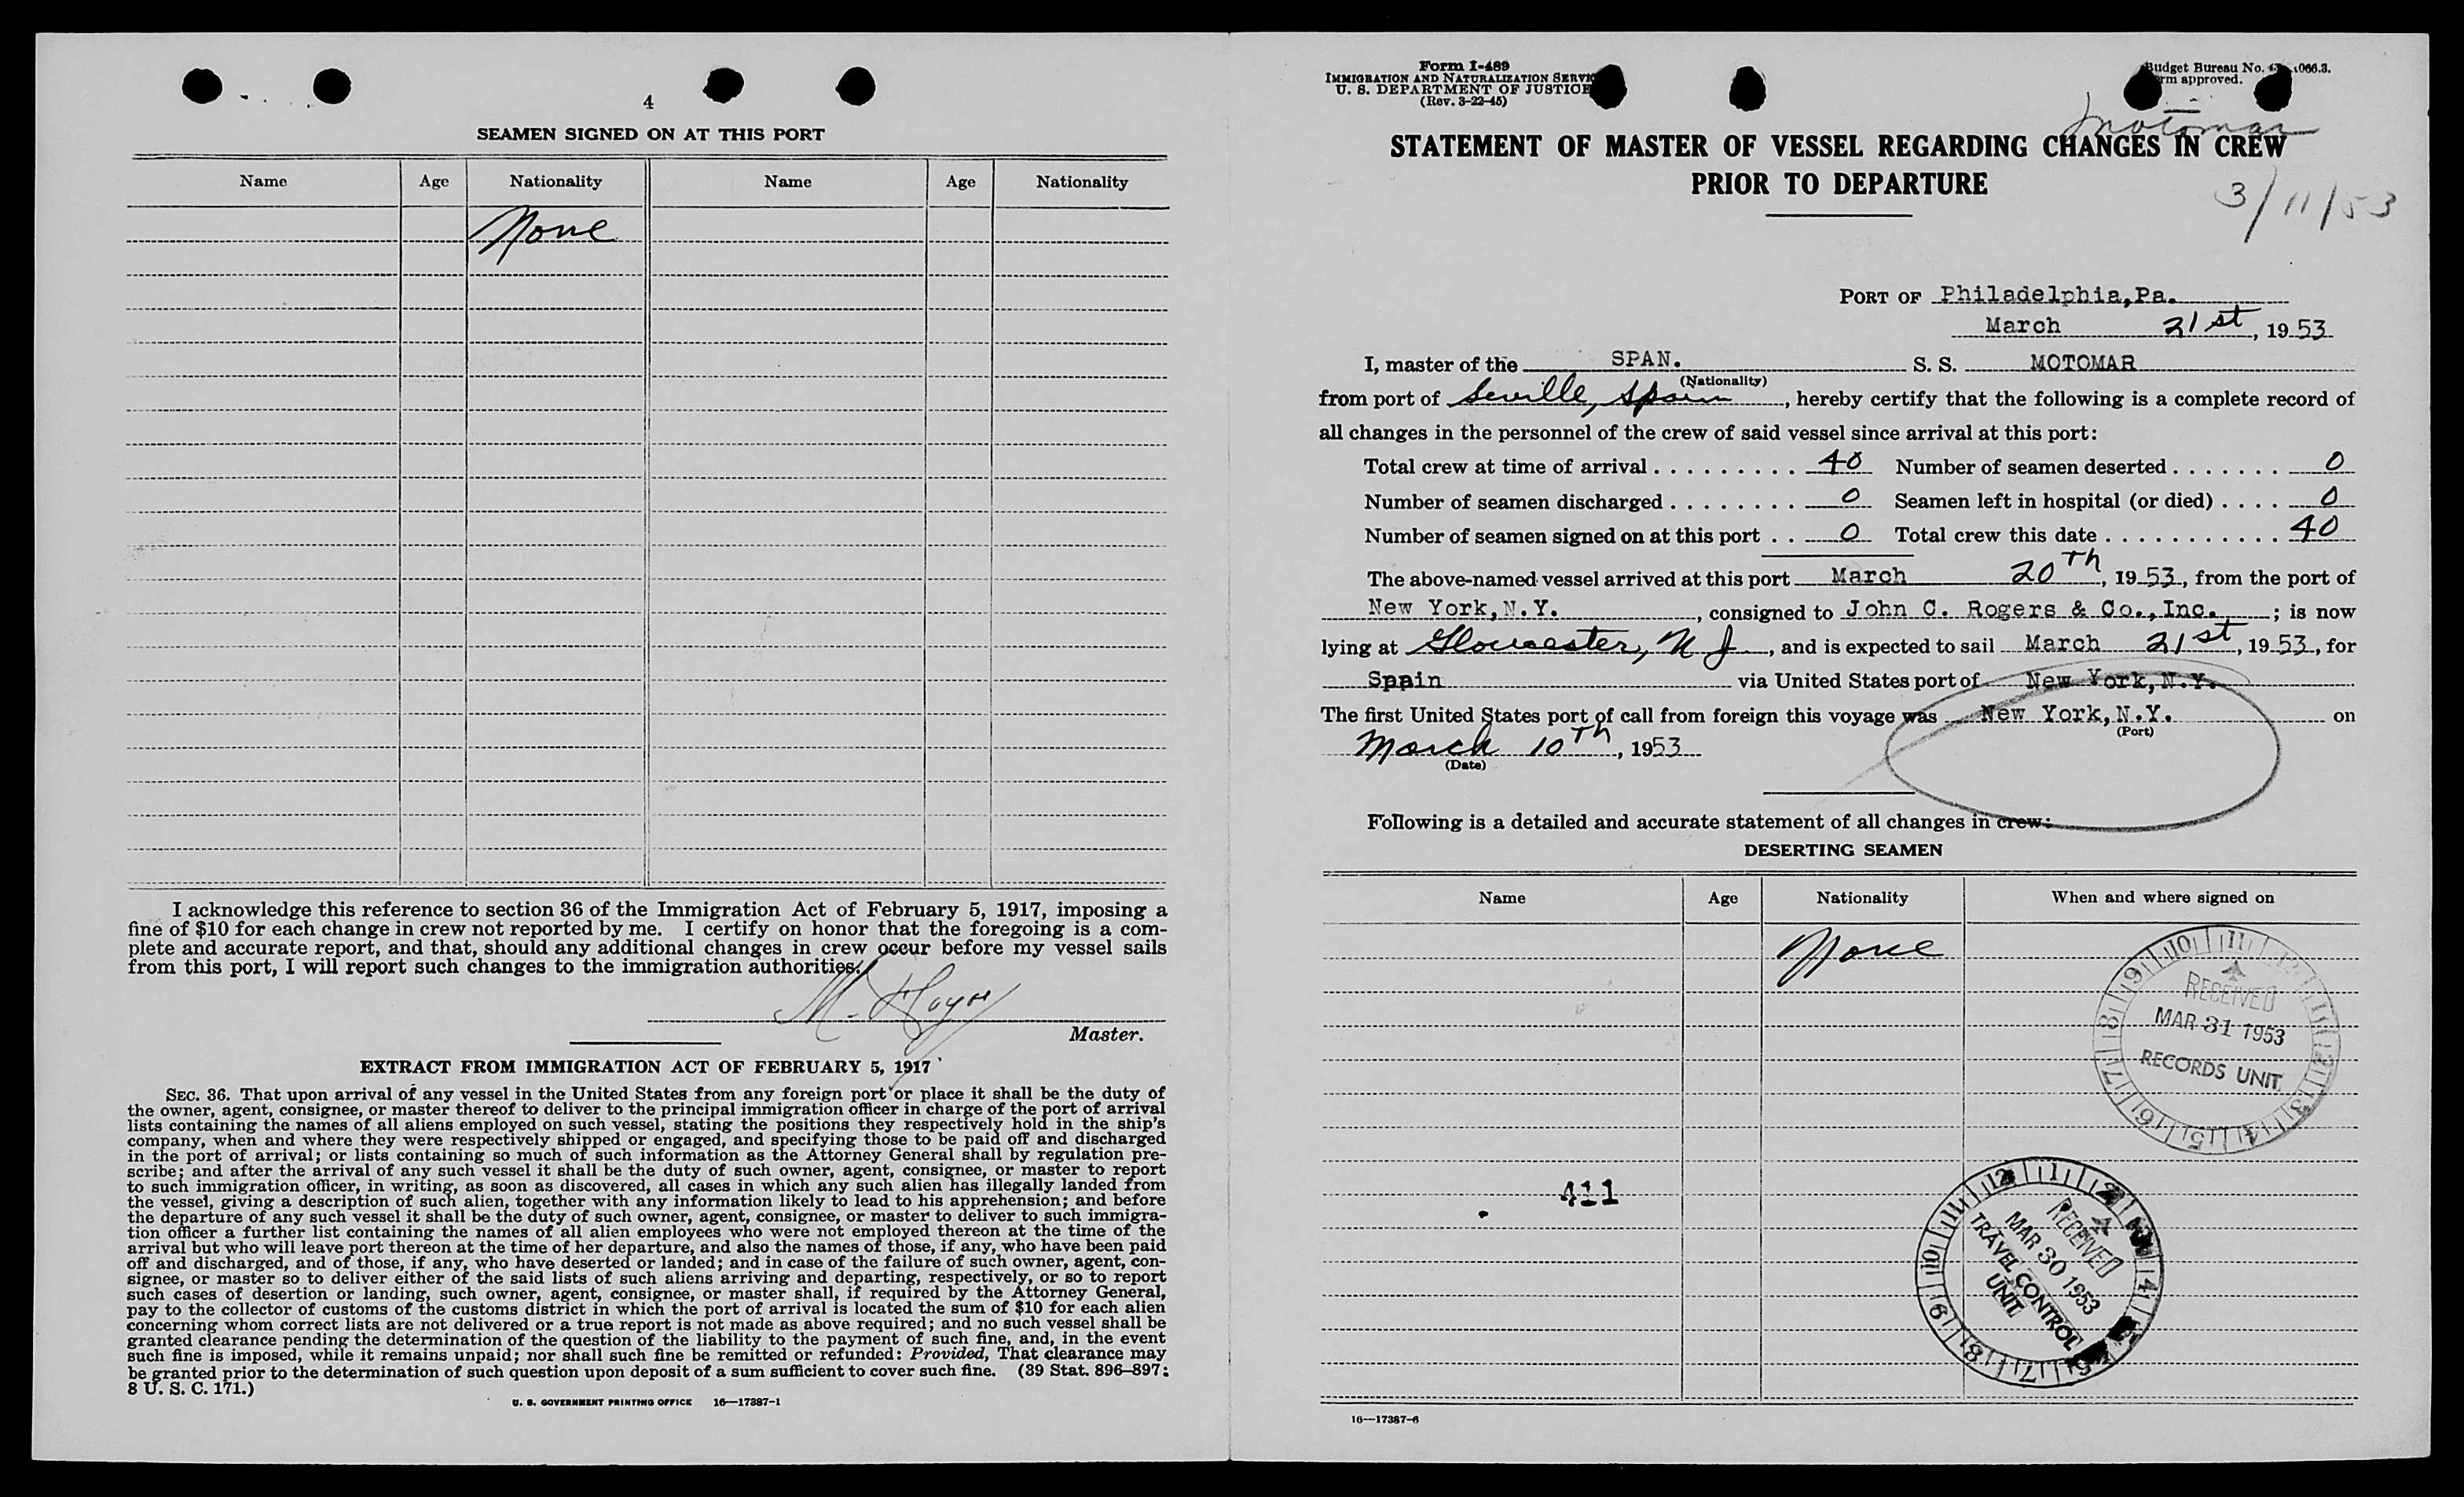 4
SEAMEN SIGNED ON AT THIS PORT
Name Age Nationality Name Age Nationality
None
I acknowledge this reference to section 36 of the Immigration Act of February 5, 1917, imposing a
fine of $10 for each change in crew not reported by me. I certify on honor that the foregoing is a com-
plete and accurate report, and that, should any additional changes in crew occur before my vessel sails
from this port, I will report such changes to the immigration authorities.
M.
Master.
EXTRACT FROM IMMIGRATION ACT OF FEBRUARY 5, 1917
SEC. 36. That upon arrival of any vessel in the United States from any foreign port or place it shall be the duty of
the owner, agent, consignee, or master thereof to deliver to the principal immigration officer in charge of the port of arrival
lists containing the names of all aliens employed on such vessel, stating the positions they respectively hold in the ship's
company, when and where they were respectively shipped or engaged, and specifying those to be paid off and discharged
in the port of arrival; or lists containing so much of such information as the Attorney General shall by regulation pre-
scribe; and after the arrival of any such vessel it shall be the duty of such owner, agent, consignee, or master to report
to such immigration officer, in writing, as soon as discovered, all cases in which any such alien has illegally landed from
the vessel, giving a description of such alien, together with any information likely to lead to his apprehension; and before
the departure of any such vessel it shall be the duty of such owner, agent, consignee, or master to deliver to such immigra-
tion officer a further list containing the names of all alien employees who were not employed thereon at the time of the
arrival but who will leave port thereon at the time of her departure, and also the names of those, if any, who have been paid
off and discharged, and of those, if any, who have deserted or landed; and in case of the failure of such owner, agent, con-
signee, or master so to deliver either of the said lists of such aliens arriving and departing, respectively, or so to report
such cases of desertion or landing, such owner, agent, consignee, or master shall, if required by the Attorney General,
pay to the collector of customs of the customs district in which the port of arrival is located the sum of $10 for each alien
concerning whom correct lists are not delivered or a true report is not made as above required; and no such vessel shall be
granted clearance pending the determination of the question of the liability to the payment of such fine, and, in the event
such fine is imposed, while it remains unpaid; nor shall such fine be remitted or refunded: Provided, That clearance may
be granted prior to the determination of such question upon deposit of a sum sufficient to cover such fine. (39 Stat. 896–897;
8 U. S. C. 171.)
U. S. GOVERNMENT PRINTING OFFICE 16—17387-1
Form I-489
IMMIGRATION AND NATURALIZATION
U. S. DEPARTMENT OF JUSTICE
(Rev. 3-22-45)
Budget Bureau No.
approved.
Motomar
STATEMENT OF MASTER OF VESSEL REGARDING CHANGES IN CREW
PRIOR TO DEPARTURE
3/11/53
PORT OF Philadelphia,Pa.
March 21st, 1953
I, master of the SPAN. S. S. MOTOMAR
(Nationality)
from port of Seville, Spain, hereby certify that the following is a complete record of
all changes in the personnel of the crew of said vessel since arrival at this port:
Total crew at time of arrival . . . . . . . . . 40 Number of seamen deserted . . . . . . . 0
Number of seamen discharged . . . . . . . . 0 Seamen left in hospital (or died) . . . . 0
Number of seamen signed on at this port . . 0 Total crew this date . . . . . . . . . . . 40
The above-named vessel arrived at this port March 20Th, 1953, from the port of
New York,N.Y., consigned to John C. Rogers & Co.,Inc. ; is now
lying at Gloucester, N J, and is expected to sail March 21st, 1953, for
Spain via United States port of New York,N.Y.
The first United States port of call from foreign this voyage was New York,N.Y. on
(Port)
March 10Th, 1953
(Date)
Following is a detailed and accurate statement of all changes in crew:
DESERTING SEAMEN
Name Age Nationality When and where signed on
None
RECEIVED
MAR 31 1953
RECORDS UNIT
411
RECEIVED
MAR 30 1953
TRAVEL CONTROL
UNIT
16—17387-6